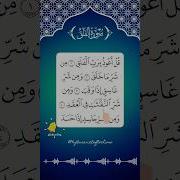 سُورَةُ الفَلَقِ
قُلْ أَعُوذُ بِرَبِّ الْفَلَقِ ① مِن
شَرِّ مَا خَلَقَ ② وَمِن شَرِّ
غَاسِقٍ إِذَا وَقَبَ ③ وَمِن
شَرِّ النَّفَّٰثَٰتِ فِي الْعُقَدِ ④
وَمِن شَرِّ حَاسِدٍ إِذَا حَسَدَ